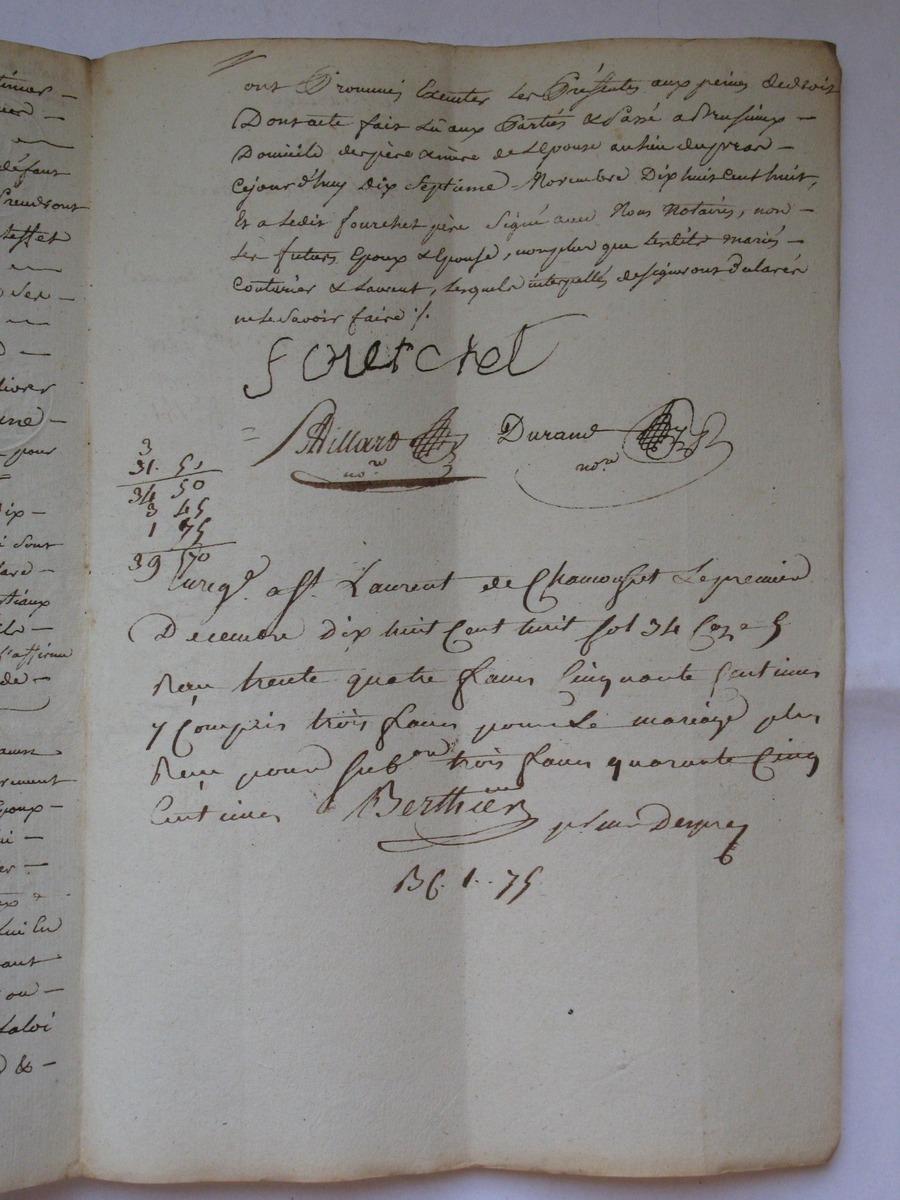 ont Promis Executer les Présentes aux peines de droit
Dont acte fait Lû aux Parties & Passé a Brusieux —
Domicile des père & mère de L'Epouse au lieu du
Cejourd'huy Dix Septieme Novembre Dix huit Cent huit,
Et a Ledit fourchet père Signé avec Nous Notaires, non —
Les futurs Epoux & Epouse, non plus que Lesdits mariés —
Couturier & Laurent, Lesquels interpellés de signer ont Déclarés
ne Le Savoir faire ./.
fourchet
Billard nore
Durand nore
3
31. 50
34 50
3 45
1 75
39 70
Enregé. a St. Laurent de Chamousset Le premier
Decembre dix huit Cent huit fol 34 Case 5
Reçu trente quatre francs Cinquante Centimes
y Compris trois francs pour Le mariage plus
Reçu pour subon trois francs quarante Cinq
Centimes Berthier
1.. 75
tinier —
défaut
Prendront
deffet
pour
Dix —
Sont
de —
Epoux —
ou —
Laloi
& —